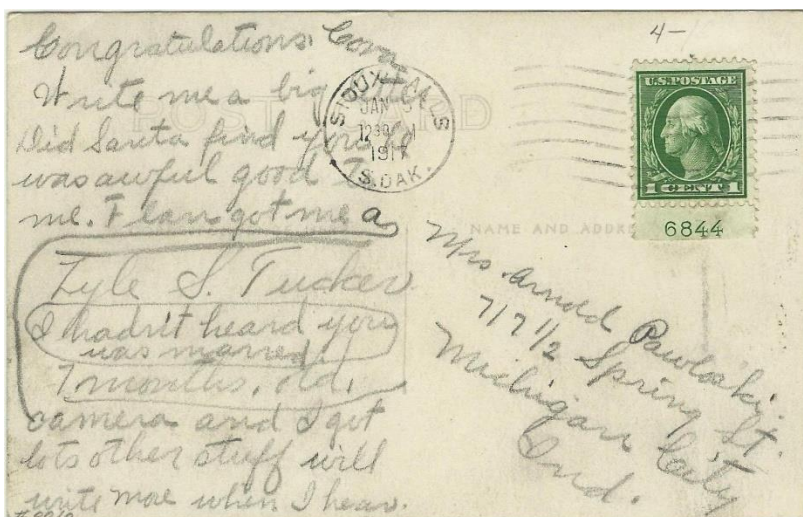 Congratulations, Cora
Write me a big letter
Did Santa find you he
was awful good to
me. F got me a
Lyle S. Tucker
I hadn't heard you
was marred
7 months, old,
camera and I got
lots other stuff will
write more when I hear.
4-
POST CARD
SIOUX FALLS
JAN 3
1230
1917
S. DAK.
U.S. POSTAGE
1 CENT 1
6844
NAME AND ADDRE
Mrs. Arnold Pawloski.
717 1/2 Spring St.
Michigan City
Ind.